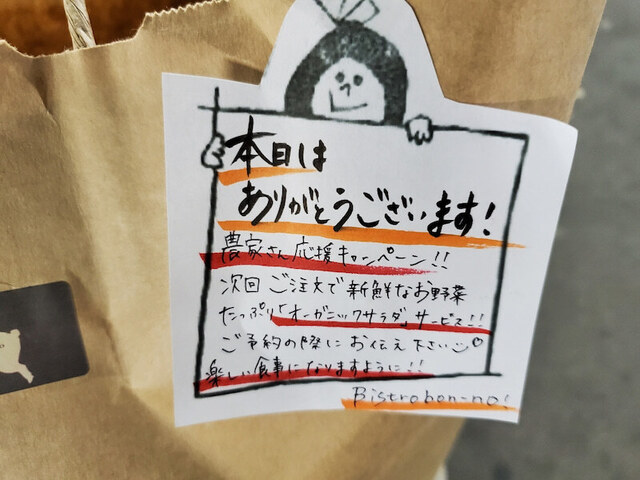 本日は
ありがとうございます!
農家さん応援キャンペーン!!
次回 ご注文で新鮮なお野菜
たっぷり「オーガニックサラダ」サービス!!
ご予約の際にお伝え下さい
楽しい食事になりますように!!
Bistrobon-no!